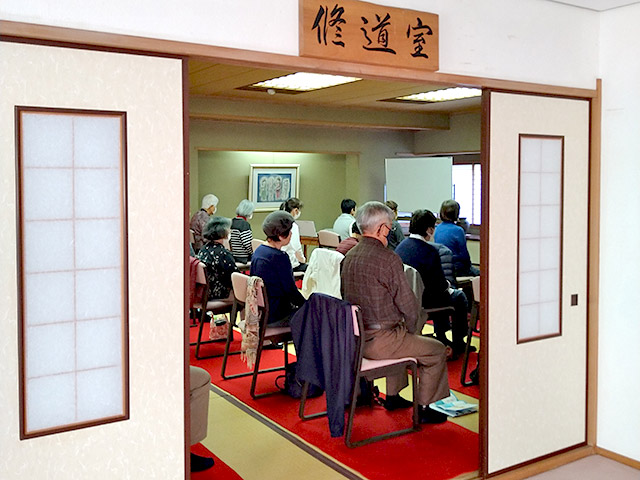 修道室